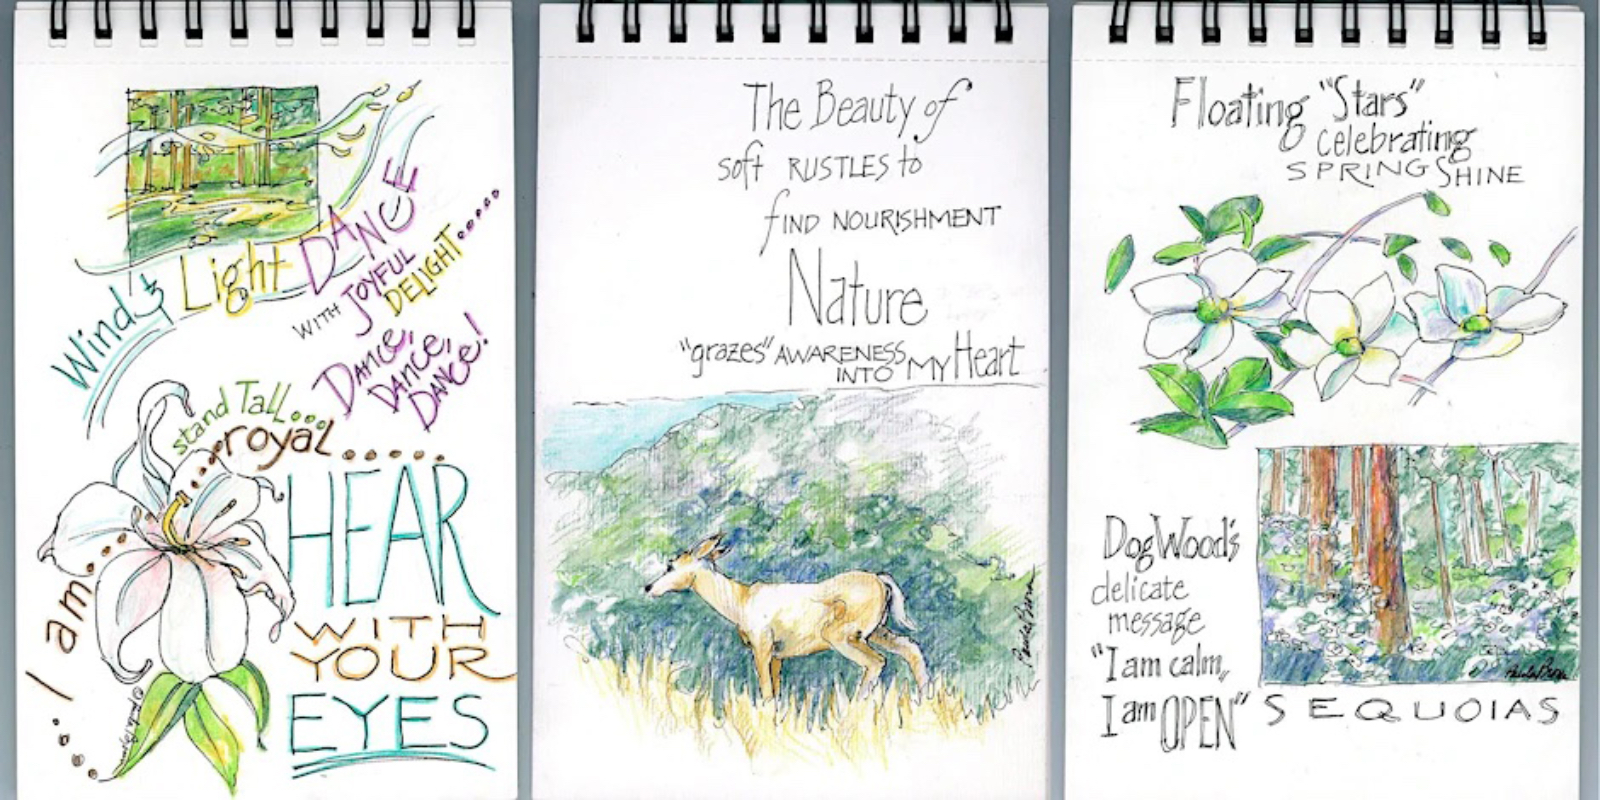 Wind & Light DANCE
WITH JOYFUL
DELIGHT.....
Dance,
DANCE,
DANCE!
stand Tall...
...royal.....
...I am...
HEAR
WITH
YOUR
EYES
The Beauty of
soft RUSTLES to
FIND NOURISHMENT
Nature
"grazes" AWARENESS
INTO MY Heart
Floating "Stars"
celebrating
SPRING SHINE
DogWood's
delicate
message
"I am calm,,
I am OPEN"
SEQUOIAS